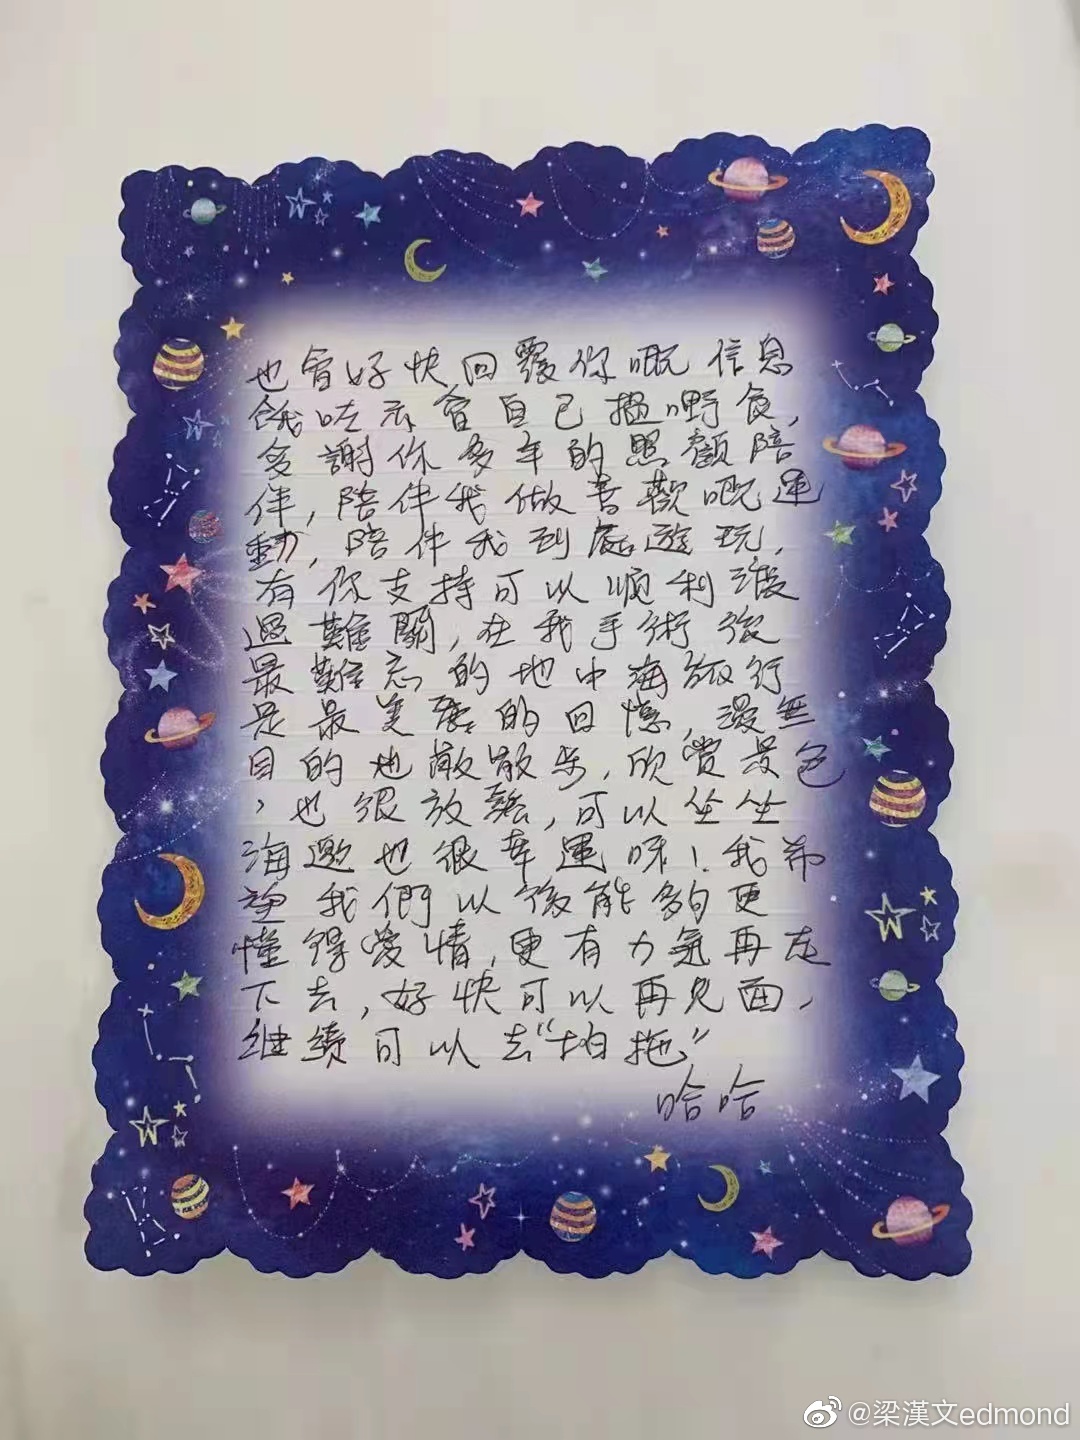 也會好快回覆你嘅信息
餓咗亦會自己搵嘢食，
多謝你多年的照顧陪
伴，陪伴我做喜歡嘅運
動，陪伴我到處遊玩，
有你支持可以順利渡
過難關，在我手術後
最難忘的地中海旅行
是最美麗的回憶，漫無
目的地散散步，欣賞景色
，也很放鬆，可以坐坐
海邊也很幸運呀！我希
望我們以後能夠更
懂得愛情，更有力氣再走
下去，好快可以再見面，
继續可以去“拍拖”
哈哈
@梁漢文edmond